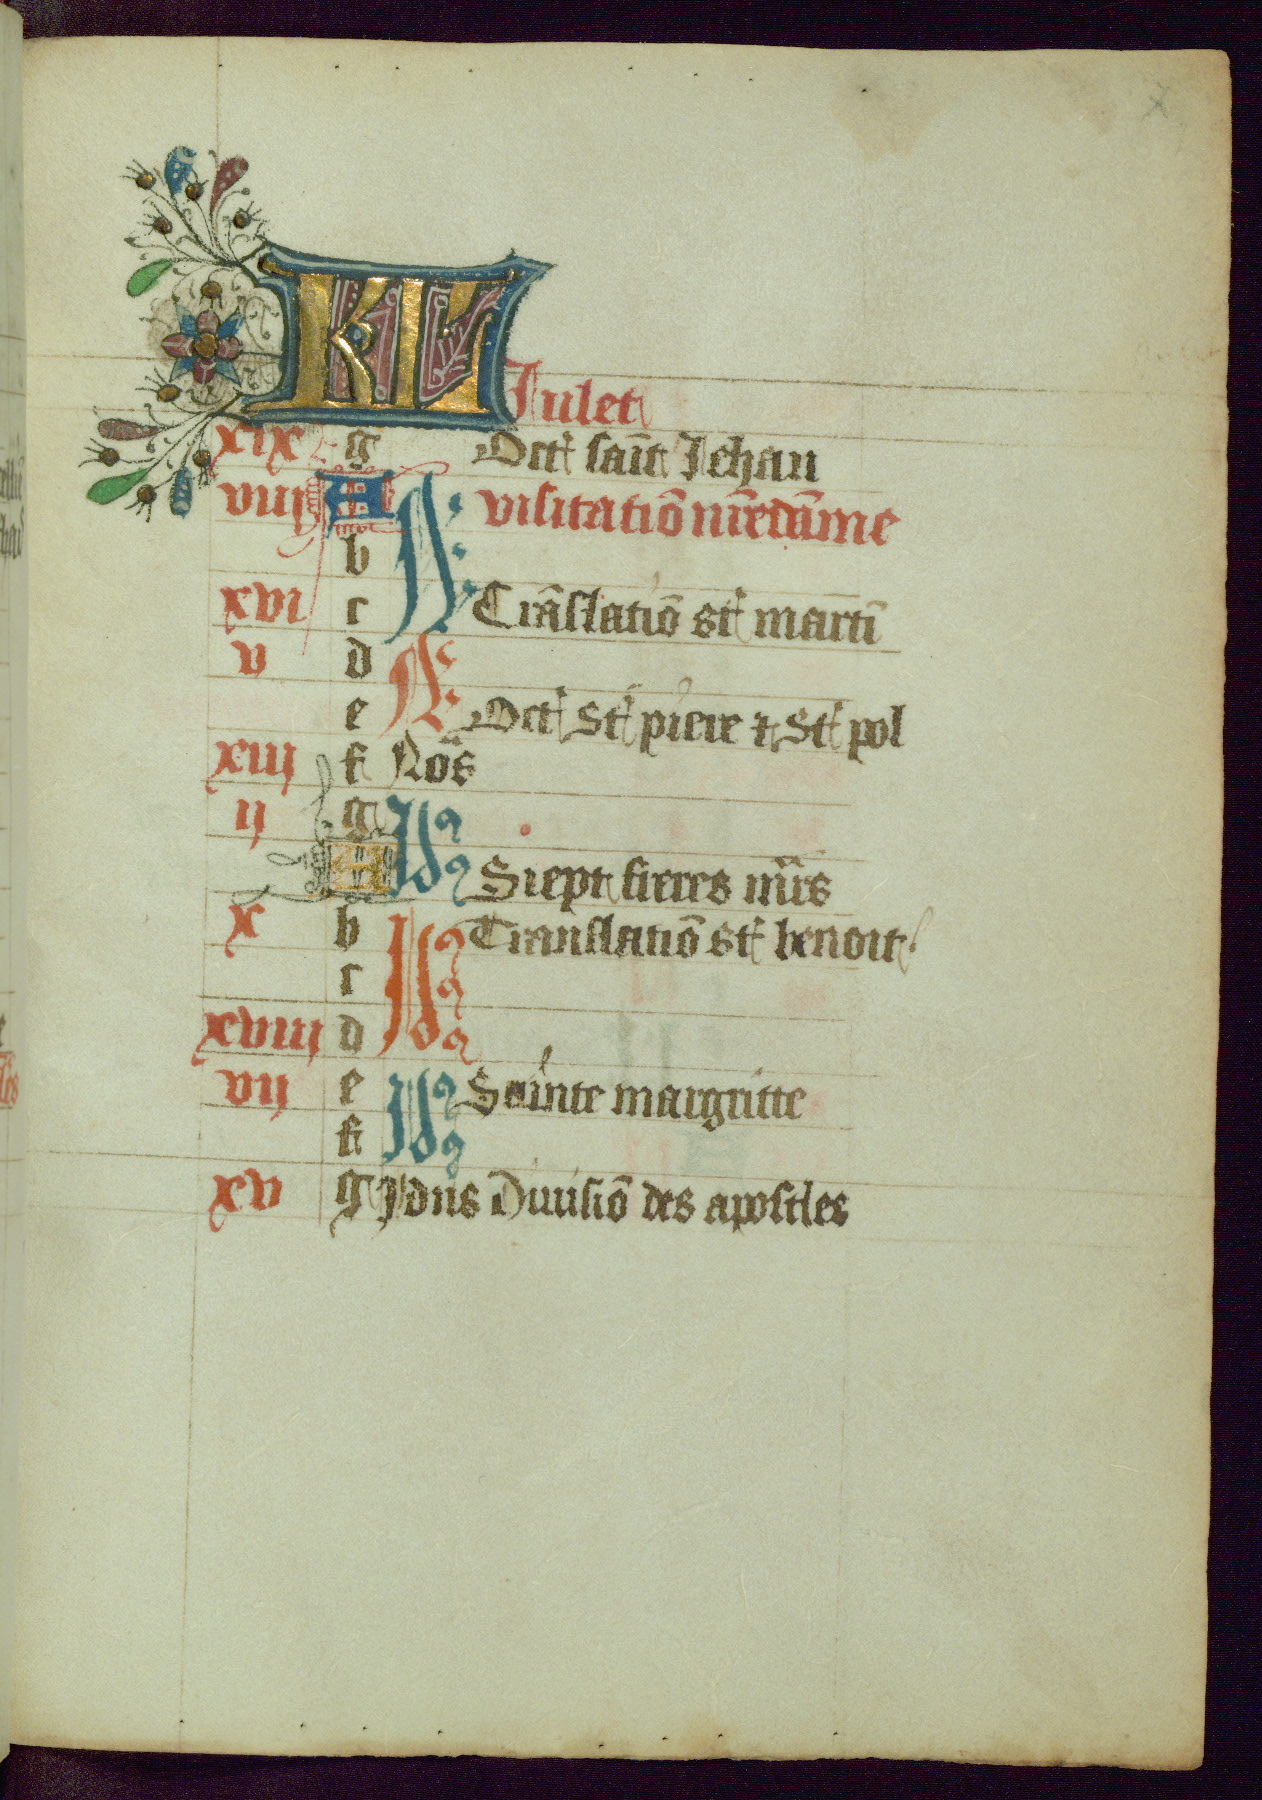 KL Julet
xix g Oct' saīt Jehan
viij A N visitatiō nr̄edāme
b
xvi c Trāslatiō st' martī
v d N
e Oct' st' piere ⁊ st' pol
xiij f Nōs
ij g Id9
A Siept freres mr̄s
x b Id9 Translatiō st' benoit
c
xviij d
vij e Id9 Sainte margritte
f
xv g Jdus Diuisiō des apostles